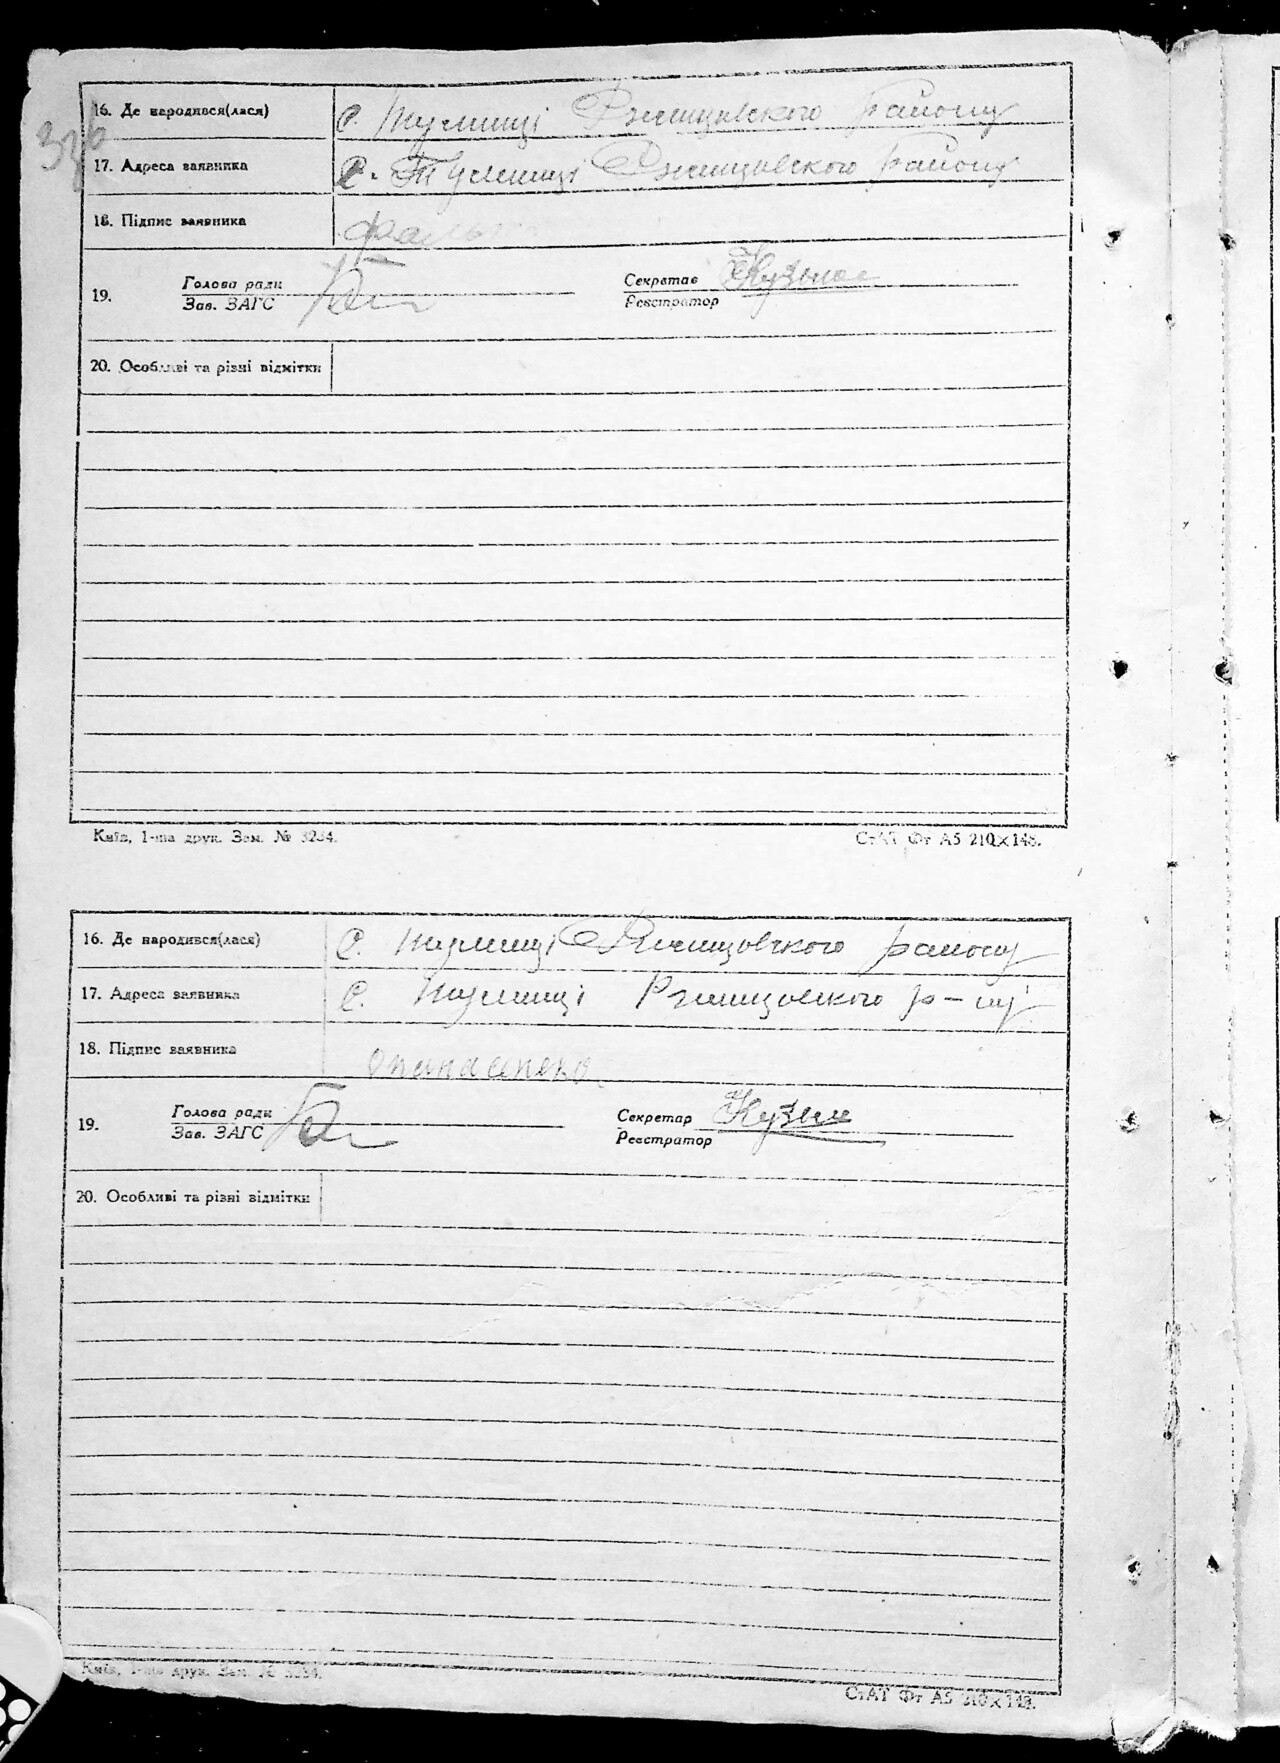 16. Де народився(лася) с. Тулинці Ржищівського району
17. Адреса заявника с. Тулинці Ржищовського району
18. Підпис заявника
19. Голова ради Секретар Кузьме
Зав. ЗАГС Реєстратор
20. Особливі та різні відмітки
Київ, 1-ша друк. Зам. № 3234. СтАТ Фт А5 210×148.
16. Де народився(лася) с. Тулинці Ржищовського району
17. Адреса заявника с. Тулинці Ржищовського р-ну
18. Підпис заявника опанасенко
19. Голова ради Секретар Кузьме
Зав. ЗАГС Реєстратор
20. Особливі та різні відмітки
Київ, 1-ша друк. Зам. № 3234.
СтАТ Фт А5 210×148.